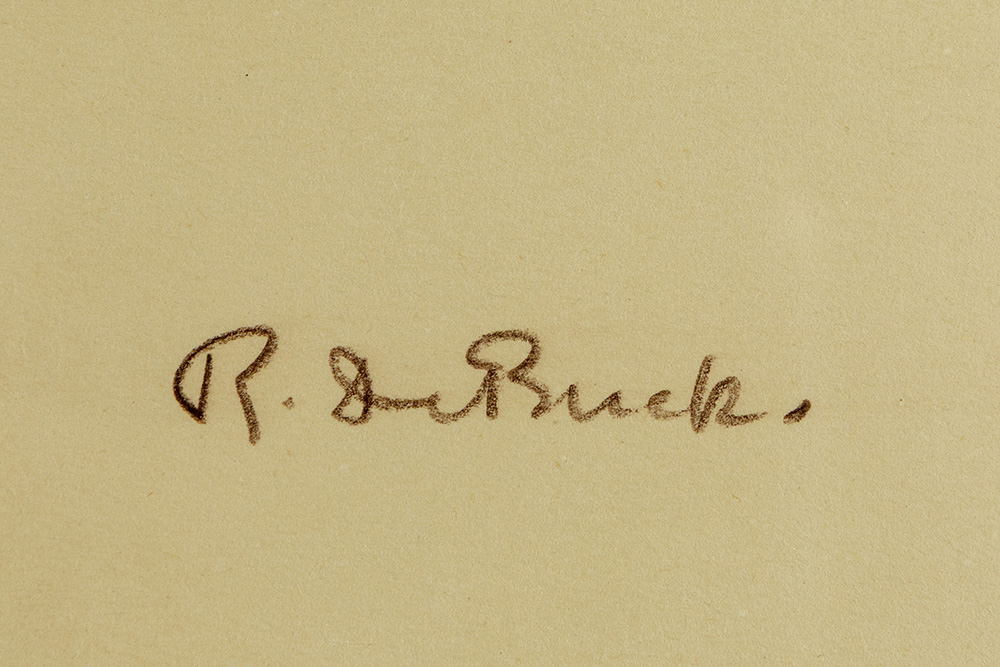 R. De Buck.